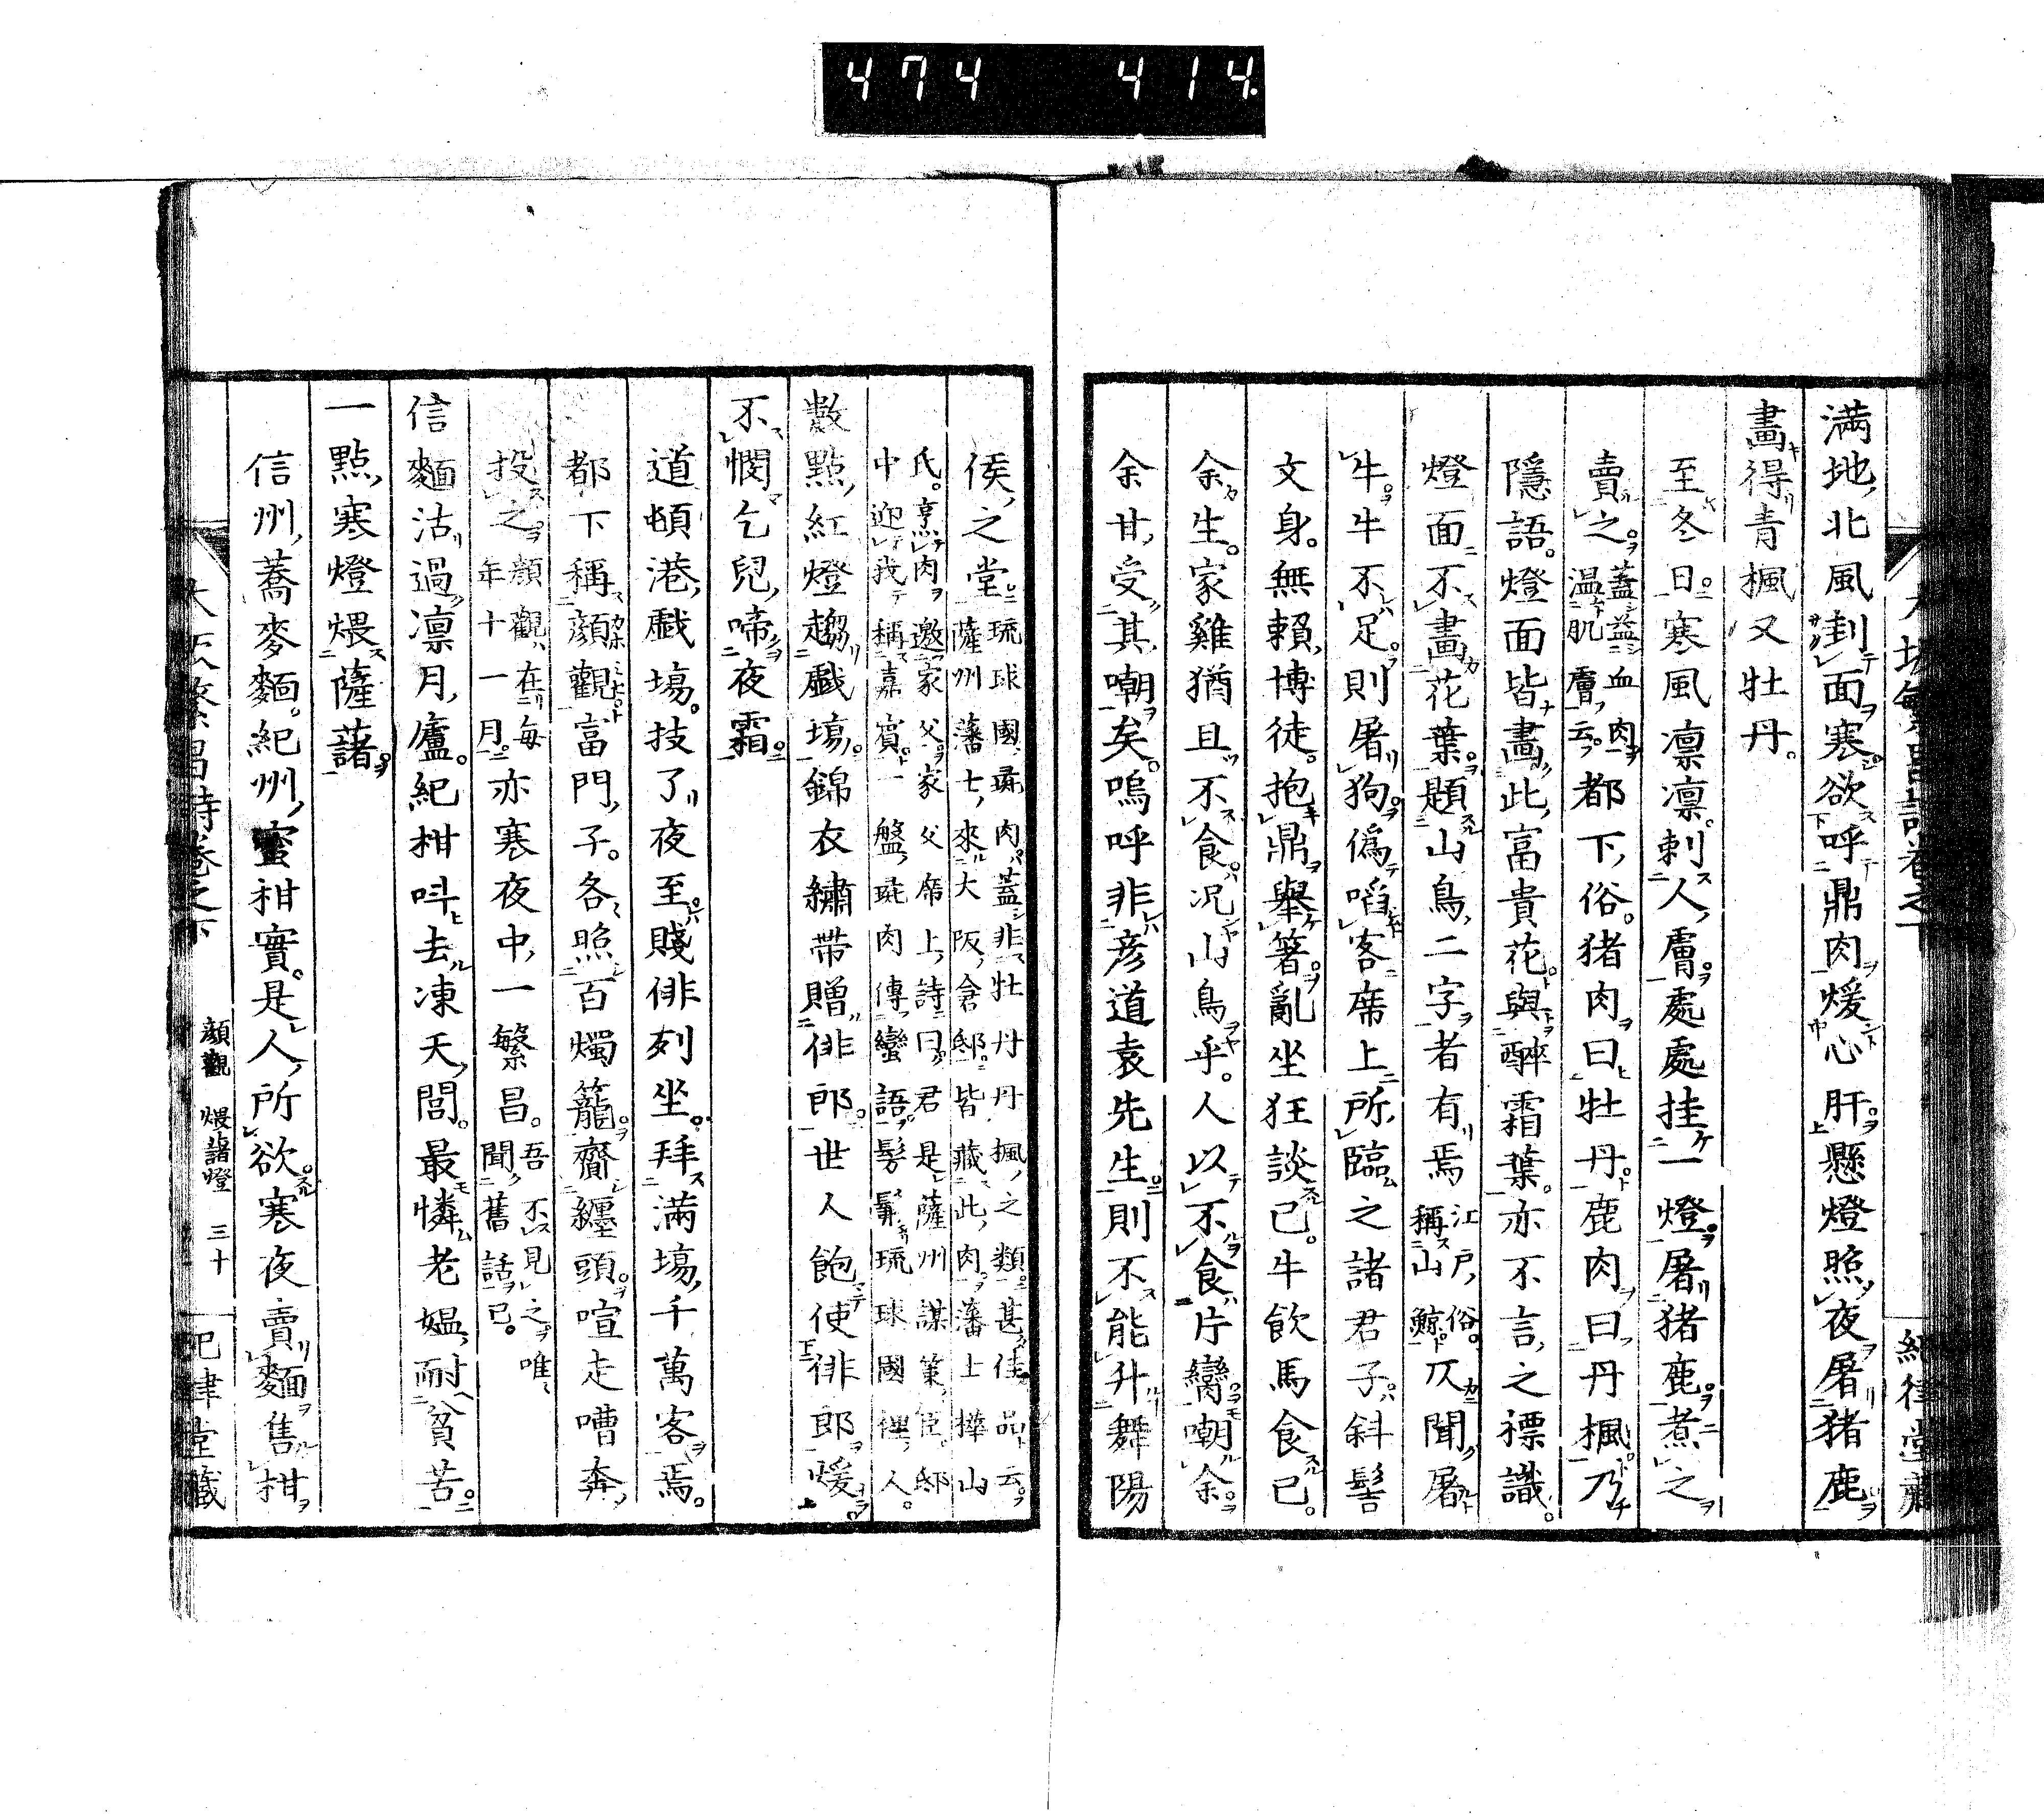 474 414.
大坂繁昌詩卷之下 紀律堂藏
満地北風刲面寒欲呼鼎肉煖心肝懸燈照夜屠猪鹿
畫得青楓又牡丹
至冬日寒風凛凛刺人膚處處挂一燈屠猪鹿煮之
賣之蓋益血肉温肌膚云都下俗猪肉曰牡丹鹿肉曰丹楓乃
隱語燈面皆畫此富貴花與醉霜葉亦不言之標識
燈面不畫花葉題山鳥二字者有焉江戸俗稱山鯨仄聞屠
牛牛不足則屠狗偽啗客席上所臨之諸君子斜髻
文身無賴博徒抱鼎舉箸亂坐狂談已牛飲馬食已
余生家雞猶且不食况山鳥乎人以不食片臠嘲余
余甘受其嘲矣嗚呼非彦道袁先生則不能升舞陽
侯之堂琉球國豕肉蓋非牡丹丹楓之類甚佳品云薩州藩士來大阪倉邸皆藏此肉藩士樺山
氏烹肉邀家父家父席上詩曰君是薩州謀葉臣邸中迎我稱嘉賓一盤㹠肉傳蠻語髣髴琉球國裡人
數點紅燈趨戲塲錦衣繡帯贈俳郎世人飽使俳郎煖
不憫乞兒啼夜霜
道頓港戲塲技了夜至賤俳列坐拜満塲千萬客焉
都下稱顔觀富門子各照百燭籠齎纏頭喧走嘈奔
投之顔觀在每年十一月亦寒夜中一繁昌吾不見之唯聞舊話已
信麵沽過凛月廬紀柑呌去凍天閭最憐老媼耐貧苦
一點寒燈煨薩藷
信州蕎麥麵紀州蜜柑實是人所欲寒夜賣麵售柑
大坂繁昌詩卷之下 顔觀 煨藷燈 三十 紀律堂藏